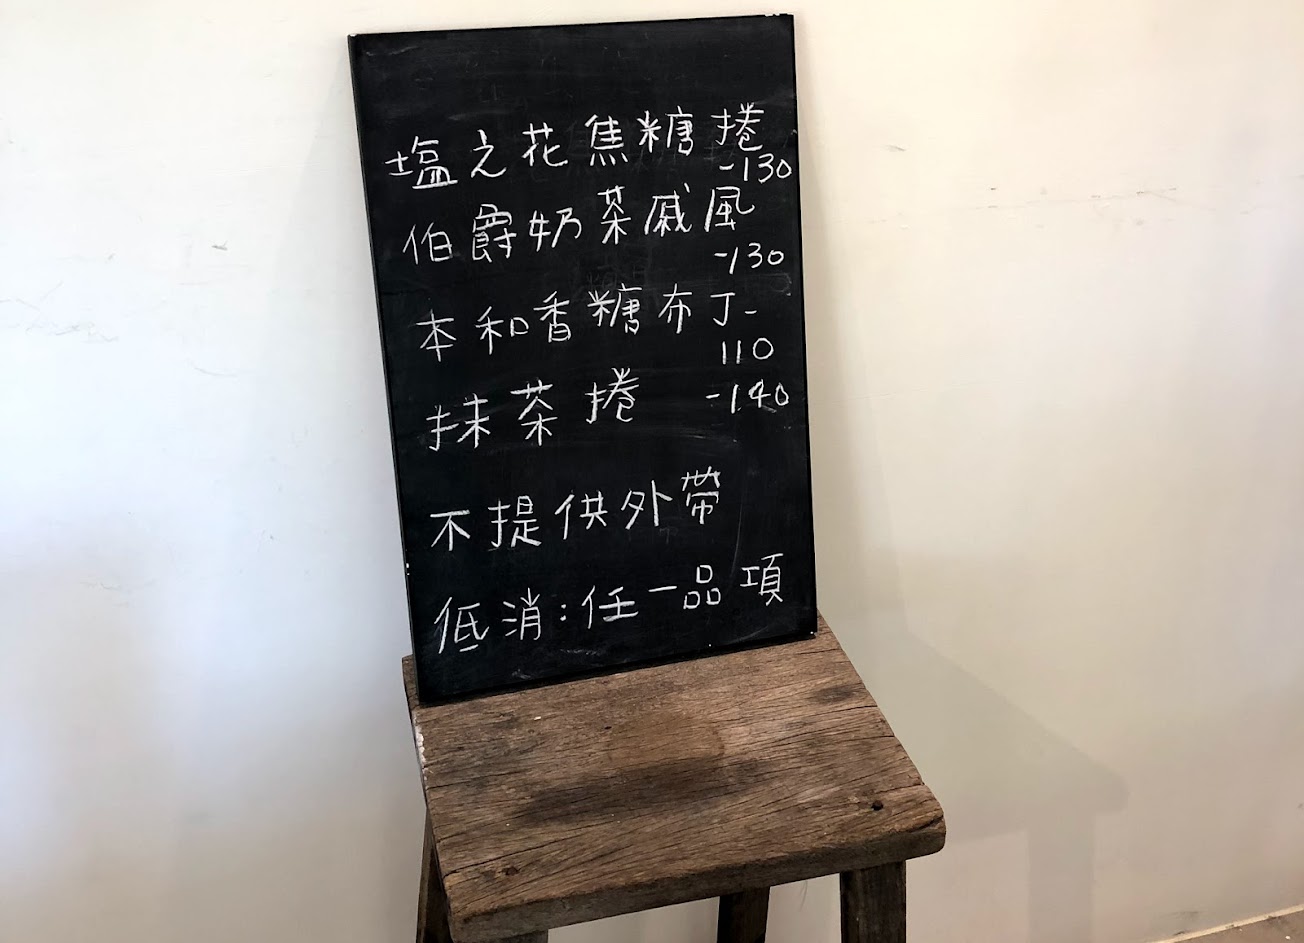 塩之花焦糖捲
-130
伯爵奶茶戚風
-130
本和香糖布丁-
110
抹茶捲 -140
不提供外帶
低消:任一品項